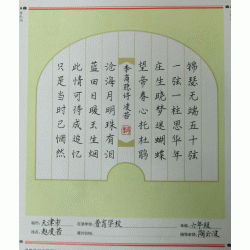 锦瑟无端五十弦
一弦一柱思华年
庄生晓梦迷蝴蝶
望帝春心托杜鹃
李商隐诗凌若
沧海月明珠有泪
蓝田日暖玉生烟
此情可待成追忆
只是当时已惘然
天津市
学校
六年级
姓名: 赵凌若